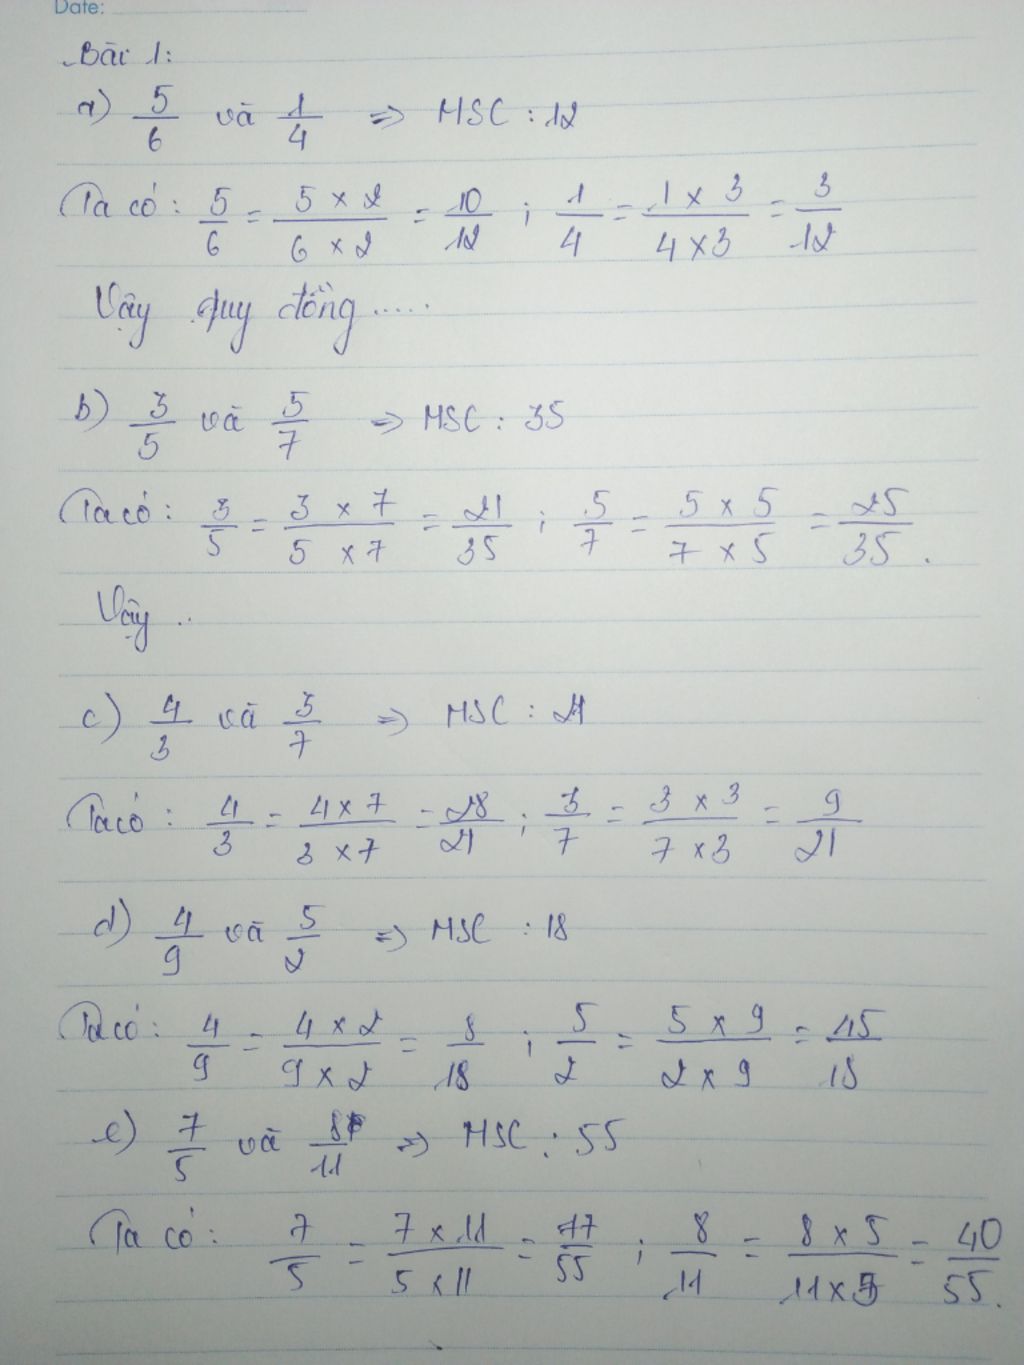 Date:
Bài 1:
a) 5/6 và 1/4 => MSC : 12
Ta có : 5/6 = 5 × 2 / 6 × 2 = 10/12 ; 1/4 = 1 × 3 / 4 × 3 = 3/12
Vậy quy đồng .....
b) 3/5 và 5/7 => MSC : 35
Ta có : 3/5 = 3 × 7 / 5 × 7 = 21/35 ; 5/7 = 5 × 5 / 7 × 5 = 25/35 .
Vậy ..
c) 4/3 và 3/7 => MSC : 21
Ta có : 4/3 = 4 × 7 / 3 × 7 = 28/21 ; 3/7 = 3 × 3 / 7 × 3 = 9/21
d) 4/9 và 5/2 => MSC : 18
Ta có : 4/9 = 4 × 2 / 9 × 2 = 8/18 ; 5/2 = 5 × 9 / 2 × 9 = 45/18
e) 7/5 và 8/11 => MSC : 55
Ta có : 7/5 = 7 × 11 / 5 × 11 = 77/55 ; 8/11 = 8 × 5 / 11 × 5 = 40/55 .